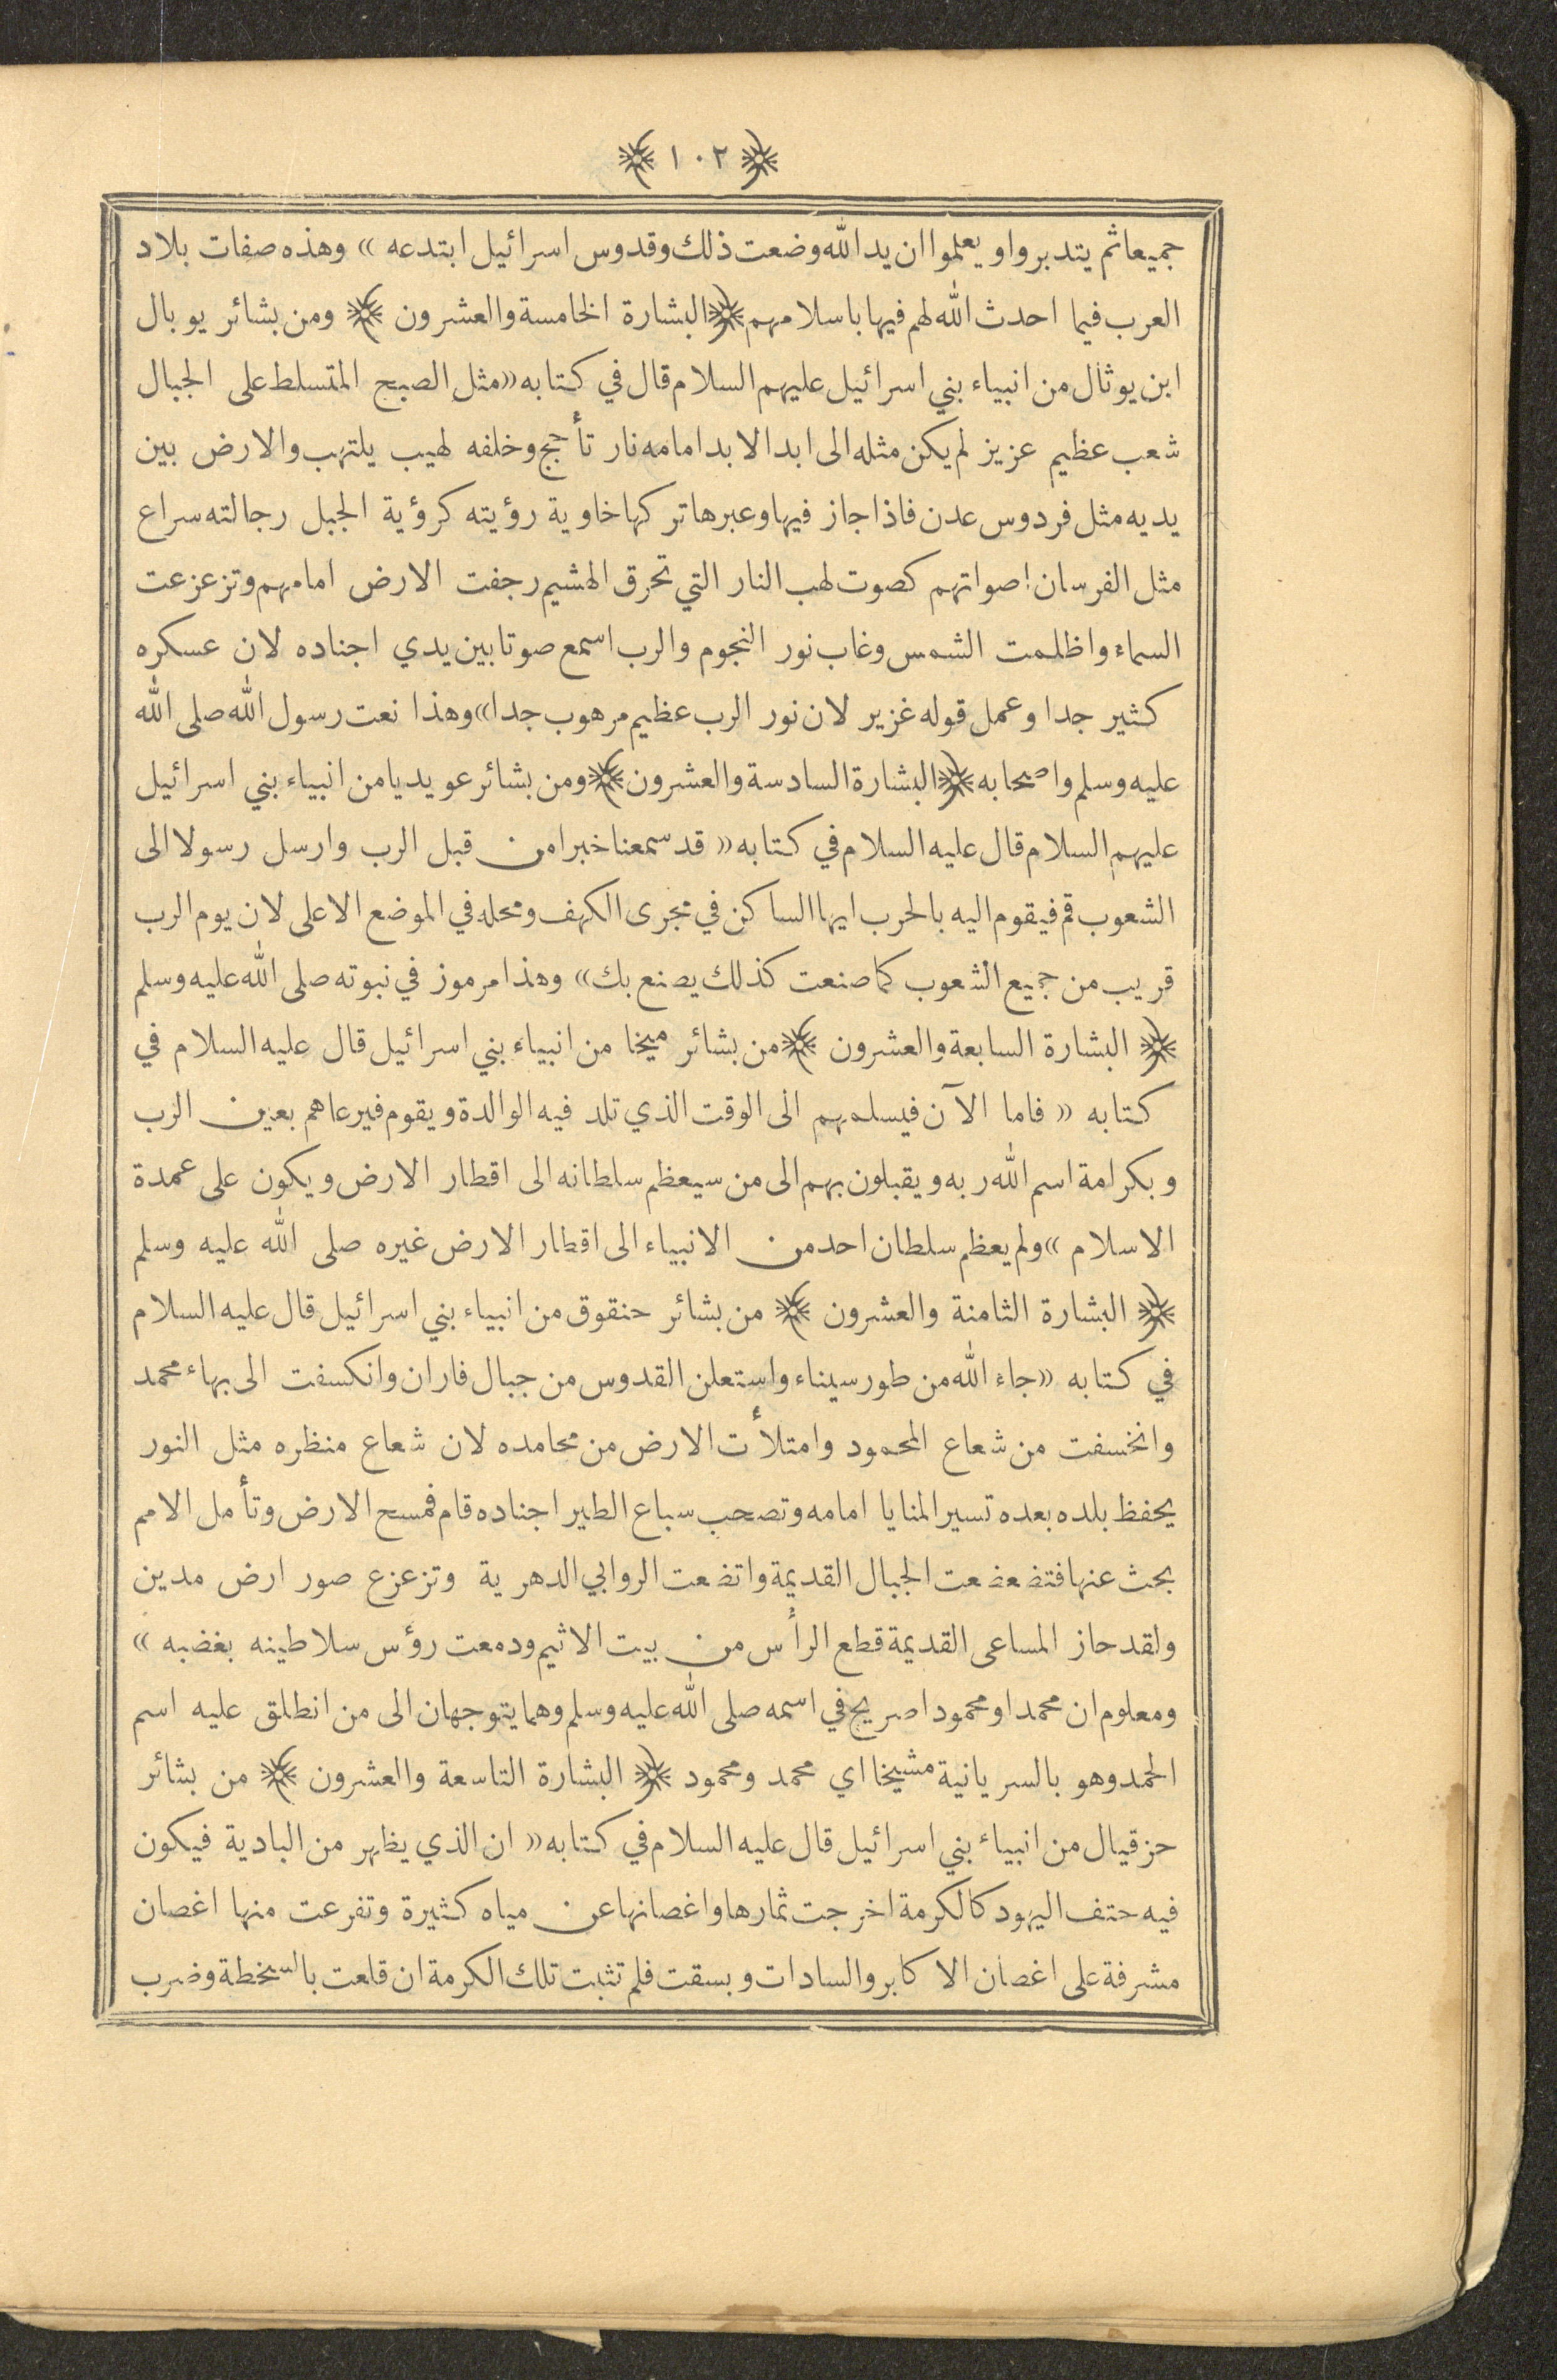 ﴿ ١٠٢ ﴾
جميعا ثم يتدبروا و يعلموا ان يد الله وضعت ذلك وقدوس اسرائيل ابتدعه » وهذه صفات بلاد
العرب فيما احدث الله لهم فيها باسلامهم ﴿ البشارة الخامسة والعشرون ﴾ ومن بشائر يوبال
ابن يوثال من انبياء بني اسرائيل عليهم السلام قال في كتابه « مثل الصبح المتسلط على الجبال
شعب عظيم عزيز لم يكن مثله الى ابد الابد امامه نار تأجج وخلفه لهيب يلتهب والارض بين
يديه مثل فردوس عدن فاذا جاز فيها وعبرها تركها خاوية رؤيته كرؤية الجبل رجالته سراع
مثل الفرسان اصواتهم كصوت لهب النار التي تحرق الهشيم رجفت الارض امامهم وتزعزعت
السماء واظلمت الشمس وغاب نور النجوم والرب اسمع صوتا بين يدي اجناده لان عسكره
كثير جدا وعمل قوله غزير لان نور الرب عظيم مرهوب جدا » وهذا نعت رسول الله صلى الله
عليه وسلم واصحابه ﴿ البشارة السادسة والعشرون ﴾ ومن بشائر عويديا من انبياء بني اسرائيل
عليهم السلام قال عليه السلام في كتابه « قد سمعنا خبرا من قبل الرب وارسل رسولا الى
الشعوب قم فيقوم اليه بالحرب ايها الساكن في مجرى الكهف ومحله في الموضع الاعلى لان يوم الرب
قريب من جميع الشعوب كما صنعت كذلك يصنع بك » وهذا مرموز في نبوته صلى الله عليه وسلم
﴿ البشارة السابعة والعشرون ﴾ من بشائر ميخا من انبياء بني اسرائيل قال عليه السلام في
كتابه « فاما الآن فيسلمهم الى الوقت الذي تلد فيه الوالدة ويقوم فيرعاهم بعين الرب
وبكرامة اسم الله ربه ويقبلون بهم الى من سيعظم سلطانه الى اقطار الارض ويكون على عمدة
الاسلام » ولم يعظم سلطان احد من الانبياء الى اقطار الارض غيره صلى الله عليه وسلم
﴿ البشارة الثامنة والعشرون ﴾ من بشائر حنقوق من انبياء بني اسرائيل قال عليه السلام
في كتابه « جاء الله من طور سيناء واستعلن القدوس من جبال فاران وانكسفت الى بهاء محمد
وانخسفت من شعاع المحمود وامتلأت الارض من محامده لان شعاع منظره مثل النور
يحفظ بلده بعده تسير المنايا امامه وتصحب سباع الطير اجناده قام فمسح الارض وتأمل الامم
بحث عنها فتضعضعت الجبال القديمة واتضعت الروابي الدهرية وتزعزع صور ارض مدين
ولقد حاز المساعى القديمة قطع الرأس من بيت الاثيم ودمعت رؤس سلاطينه بغضبه »
ومعلوم ان محمدا ومحمودا صريح في اسمه صلى الله عليه وسلم وهما يتوجهان الى من انطلق عليه اسم
الحمد وهو بالسريانية مشيخا اي محمد ومحمود ﴿ البشارة التاسعة والعشرون ﴾ من بشائر
حزقيال من انبياء بني اسرائيل قال عليه السلام في كتابه « ان الذي يظهر من البادية فيكون
فيه حتف اليهود كالكرمة اخرجت ثمارها واغصانها عن مياه كثيرة وتفرعت منها اغصان
مشرفة على اغصان الاكابر والسادات وبسقت فلم تثبت تلك الكرمة ان قلعت بالسخطة وضرب